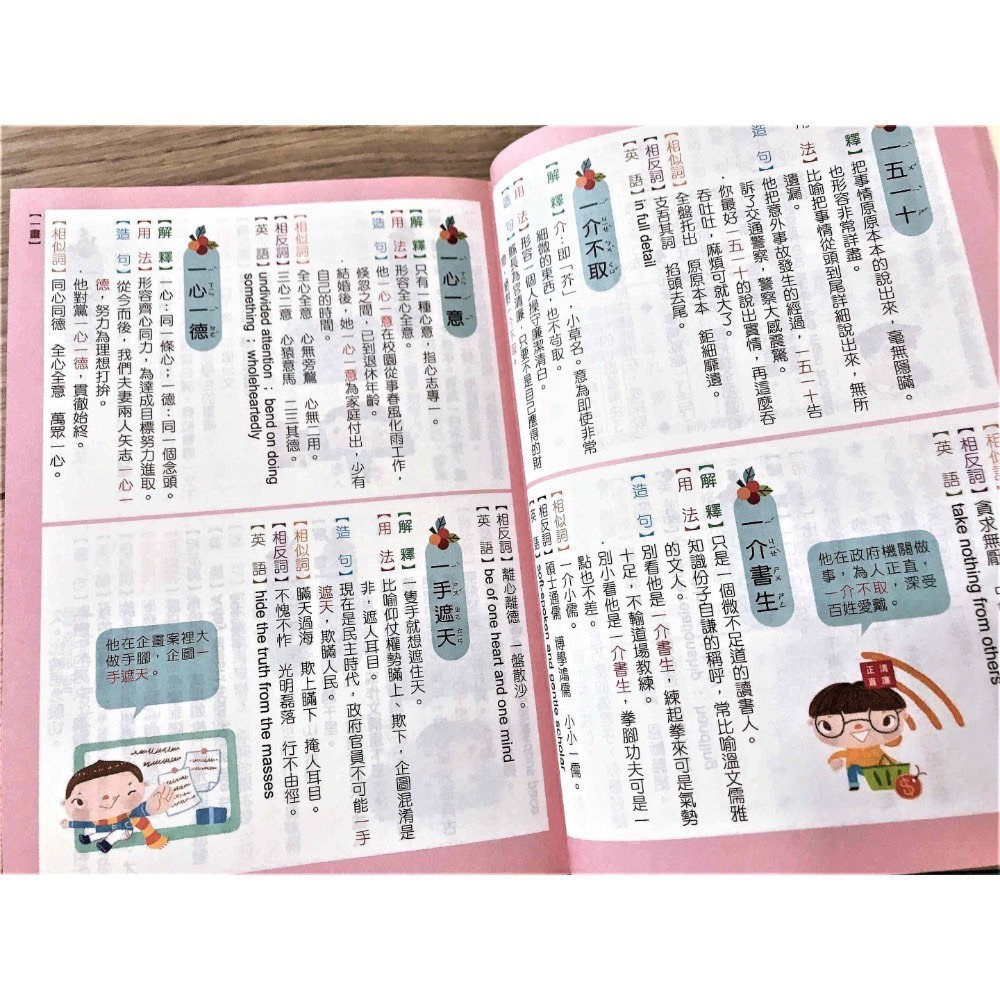 一五一十
釋】把事情原原本本的說出來，毫無隱瞞。
也形容非常詳盡。
用 法】比喻把事情從頭到尾詳細說出來，無所
遺漏。
造 句】他把意外事故發生的經過，一五一十告
訴了交通警察，警察大感震驚。
．你最好一五一十的說出實情，再這麼吞
吞吐吐，麻煩可就大了。
【相似詞】全盤托出 原原本本 鉅細靡遺。
【相反詞】支吾其詞 掐頭去尾。
【英 語】in full detail
一介不取
【解 釋】介，即「芥」，小草名。意為即使非常
細微的東西，也不苟取。
【用 法】形容一個人操守廉潔清白。
【造 句】為官清廉，只要不是自己應得的財
【相似詞】
【相反詞】貪求無厭
【英 語】take nothing from others
他在政府機關做
事，為人正直，
一介不取，深受
百姓愛戴。
清廉
正直
一介書生
【解 釋】只是一個微不足道的讀書人。
【用 法】知識份子自謙的稱呼，常比喻溫文儒雅
的文人。
【造 句】別看他是一介書生，練起拳來可是氣勢
十足，不輸道場教練。
．別小看他是一介書生，拳腳功夫可是一
點也不差。
【相似詞】一介小儒 博學鴻儒 小小一儒。
【相反詞】碩士通儒
【英 語】soft-spoken and gentle scholar
一心一意
【解 釋】只有一種心意，指心志專一。
【用 法】形容全心全意。
【造 句】他一心一意在校園從事春風化雨工作，
倏忽之間，已到退休年齡。
．結婚後，她一心一意為家庭付出，少有
自己的時間。
【相似詞】全心全意 心無旁騖 心無二用。
【相反詞】三心二意 心猿意馬 二三其德。
【英 語】undivided attention；bend on doing
something；wholeheartedly
一心一德
【解 釋】一心：同一條心；一德：同一個念頭。
【用 法】形容齊心同力，為達成目標努力進取。
【造 句】從今而後，我們夫妻兩人矢志一心一
德，努力為理想打拚。
．他對黨一心一德，貫徹始終。
【相似詞】同心同德 全心全意 萬眾一心。
【一畫】
【相反詞】離心離德 一盤散沙。
【英 語】be of one heart and one mind
一手遮天
【解 釋】一隻手就想遮住天。
【用 法】比喻仰仗權勢瞞上、欺下，企圖混淆是
非，遮人耳目。
【造 句】現在是民主時代，政府官員不可能一手
遮天，欺瞞人民。
【相似詞】瞞天過海 欺上瞞下 掩人耳目。
【相反詞】不愧不怍 光明磊落 行不由徑。
【英 語】hide the truth from the masses
他在企畫案裡大
做手腳，企圖一
手遮天。